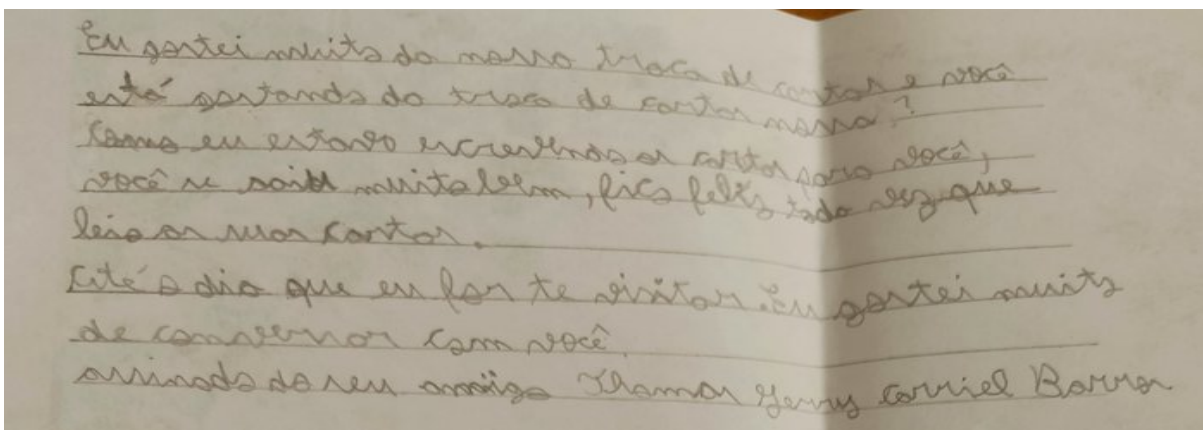 Eu gostei muito da nossa troca de cartas e você
está gostando da troca de cartas nossa?
Como eu estava escrevendo as cartas para você,
você se saiu muito bem, fico feliz toda vez que
leio as suas cartas.
Até o dia que eu for te visitar. Eu gostei muito
de conversar com você.
assinado do seu amigo Thomas Carriel Barros